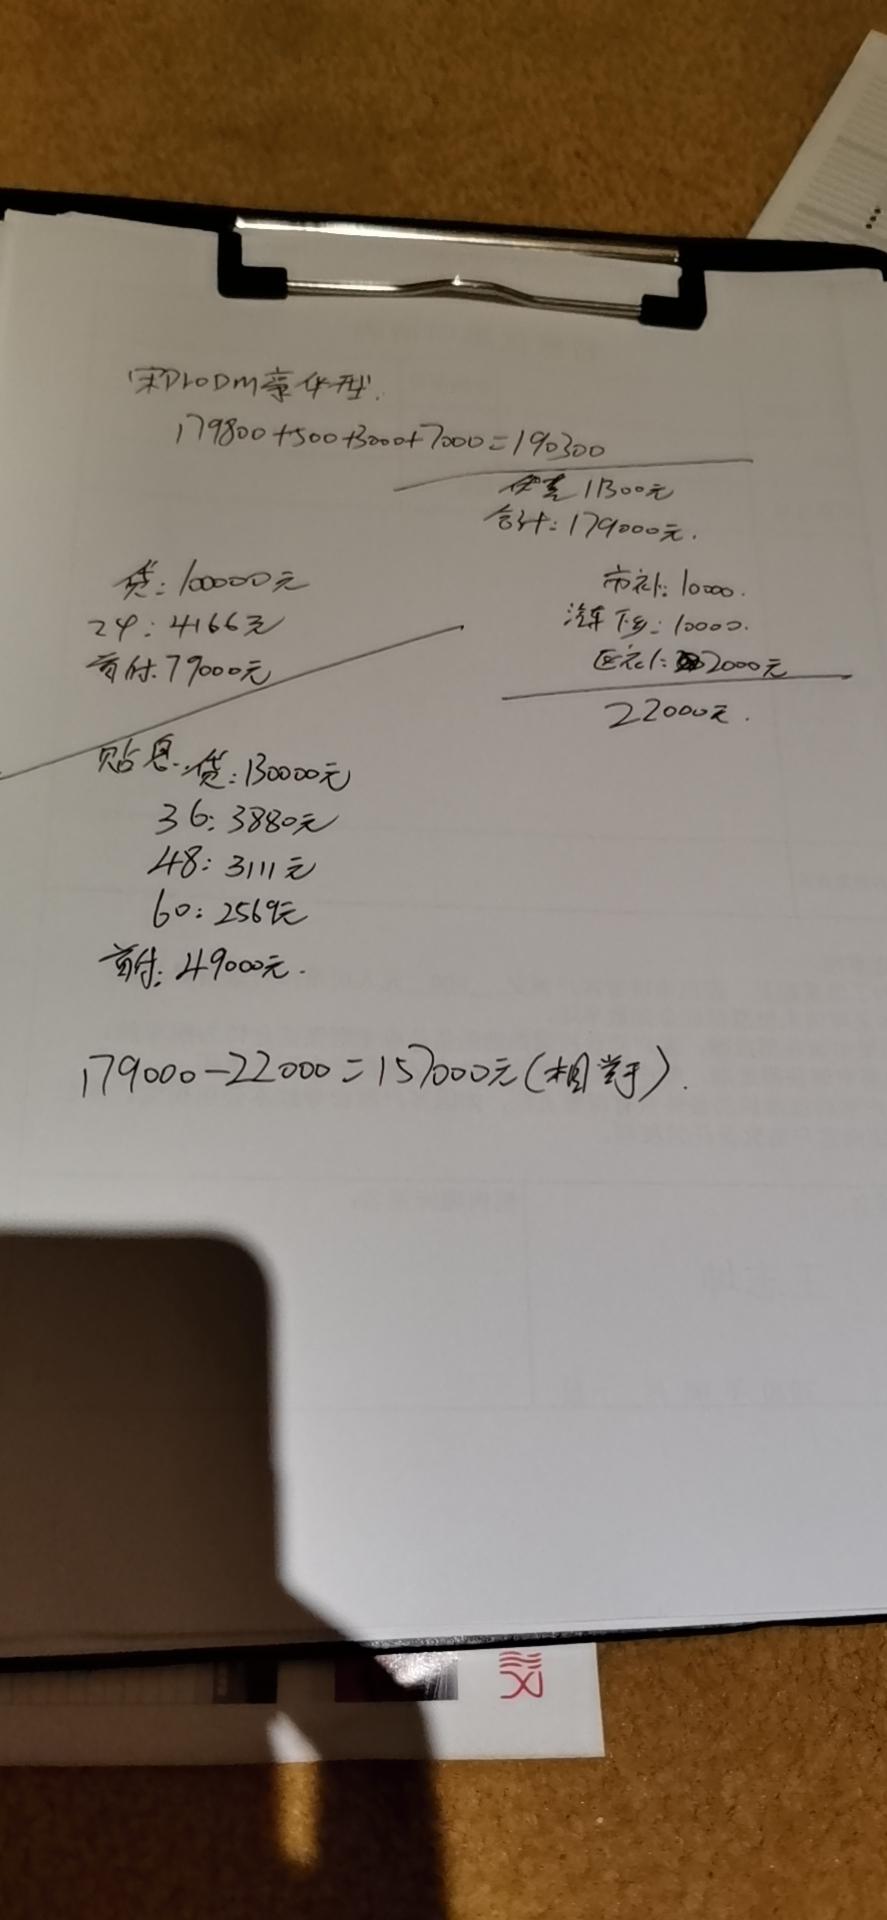 宋PLODM豪华型.
179800+500+3000+7000=190300
优惠11300元
合计:179000元.
贷:100000元
24:4166元
首付:79000元
市补:10000.
汽车下乡:10000.
区补:2000元
22000元.
贴息.贷:130000元
36:3880元
48:3111元
60:2569元
首付:49000元.
179000-22000=157000元(相当于).
汉